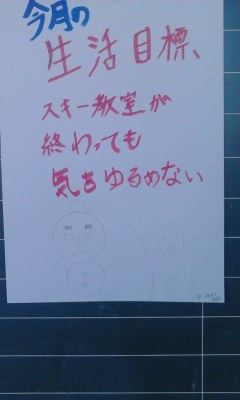 今月の
生活目標、
スキー教室が
終わっても
気をゆるめない